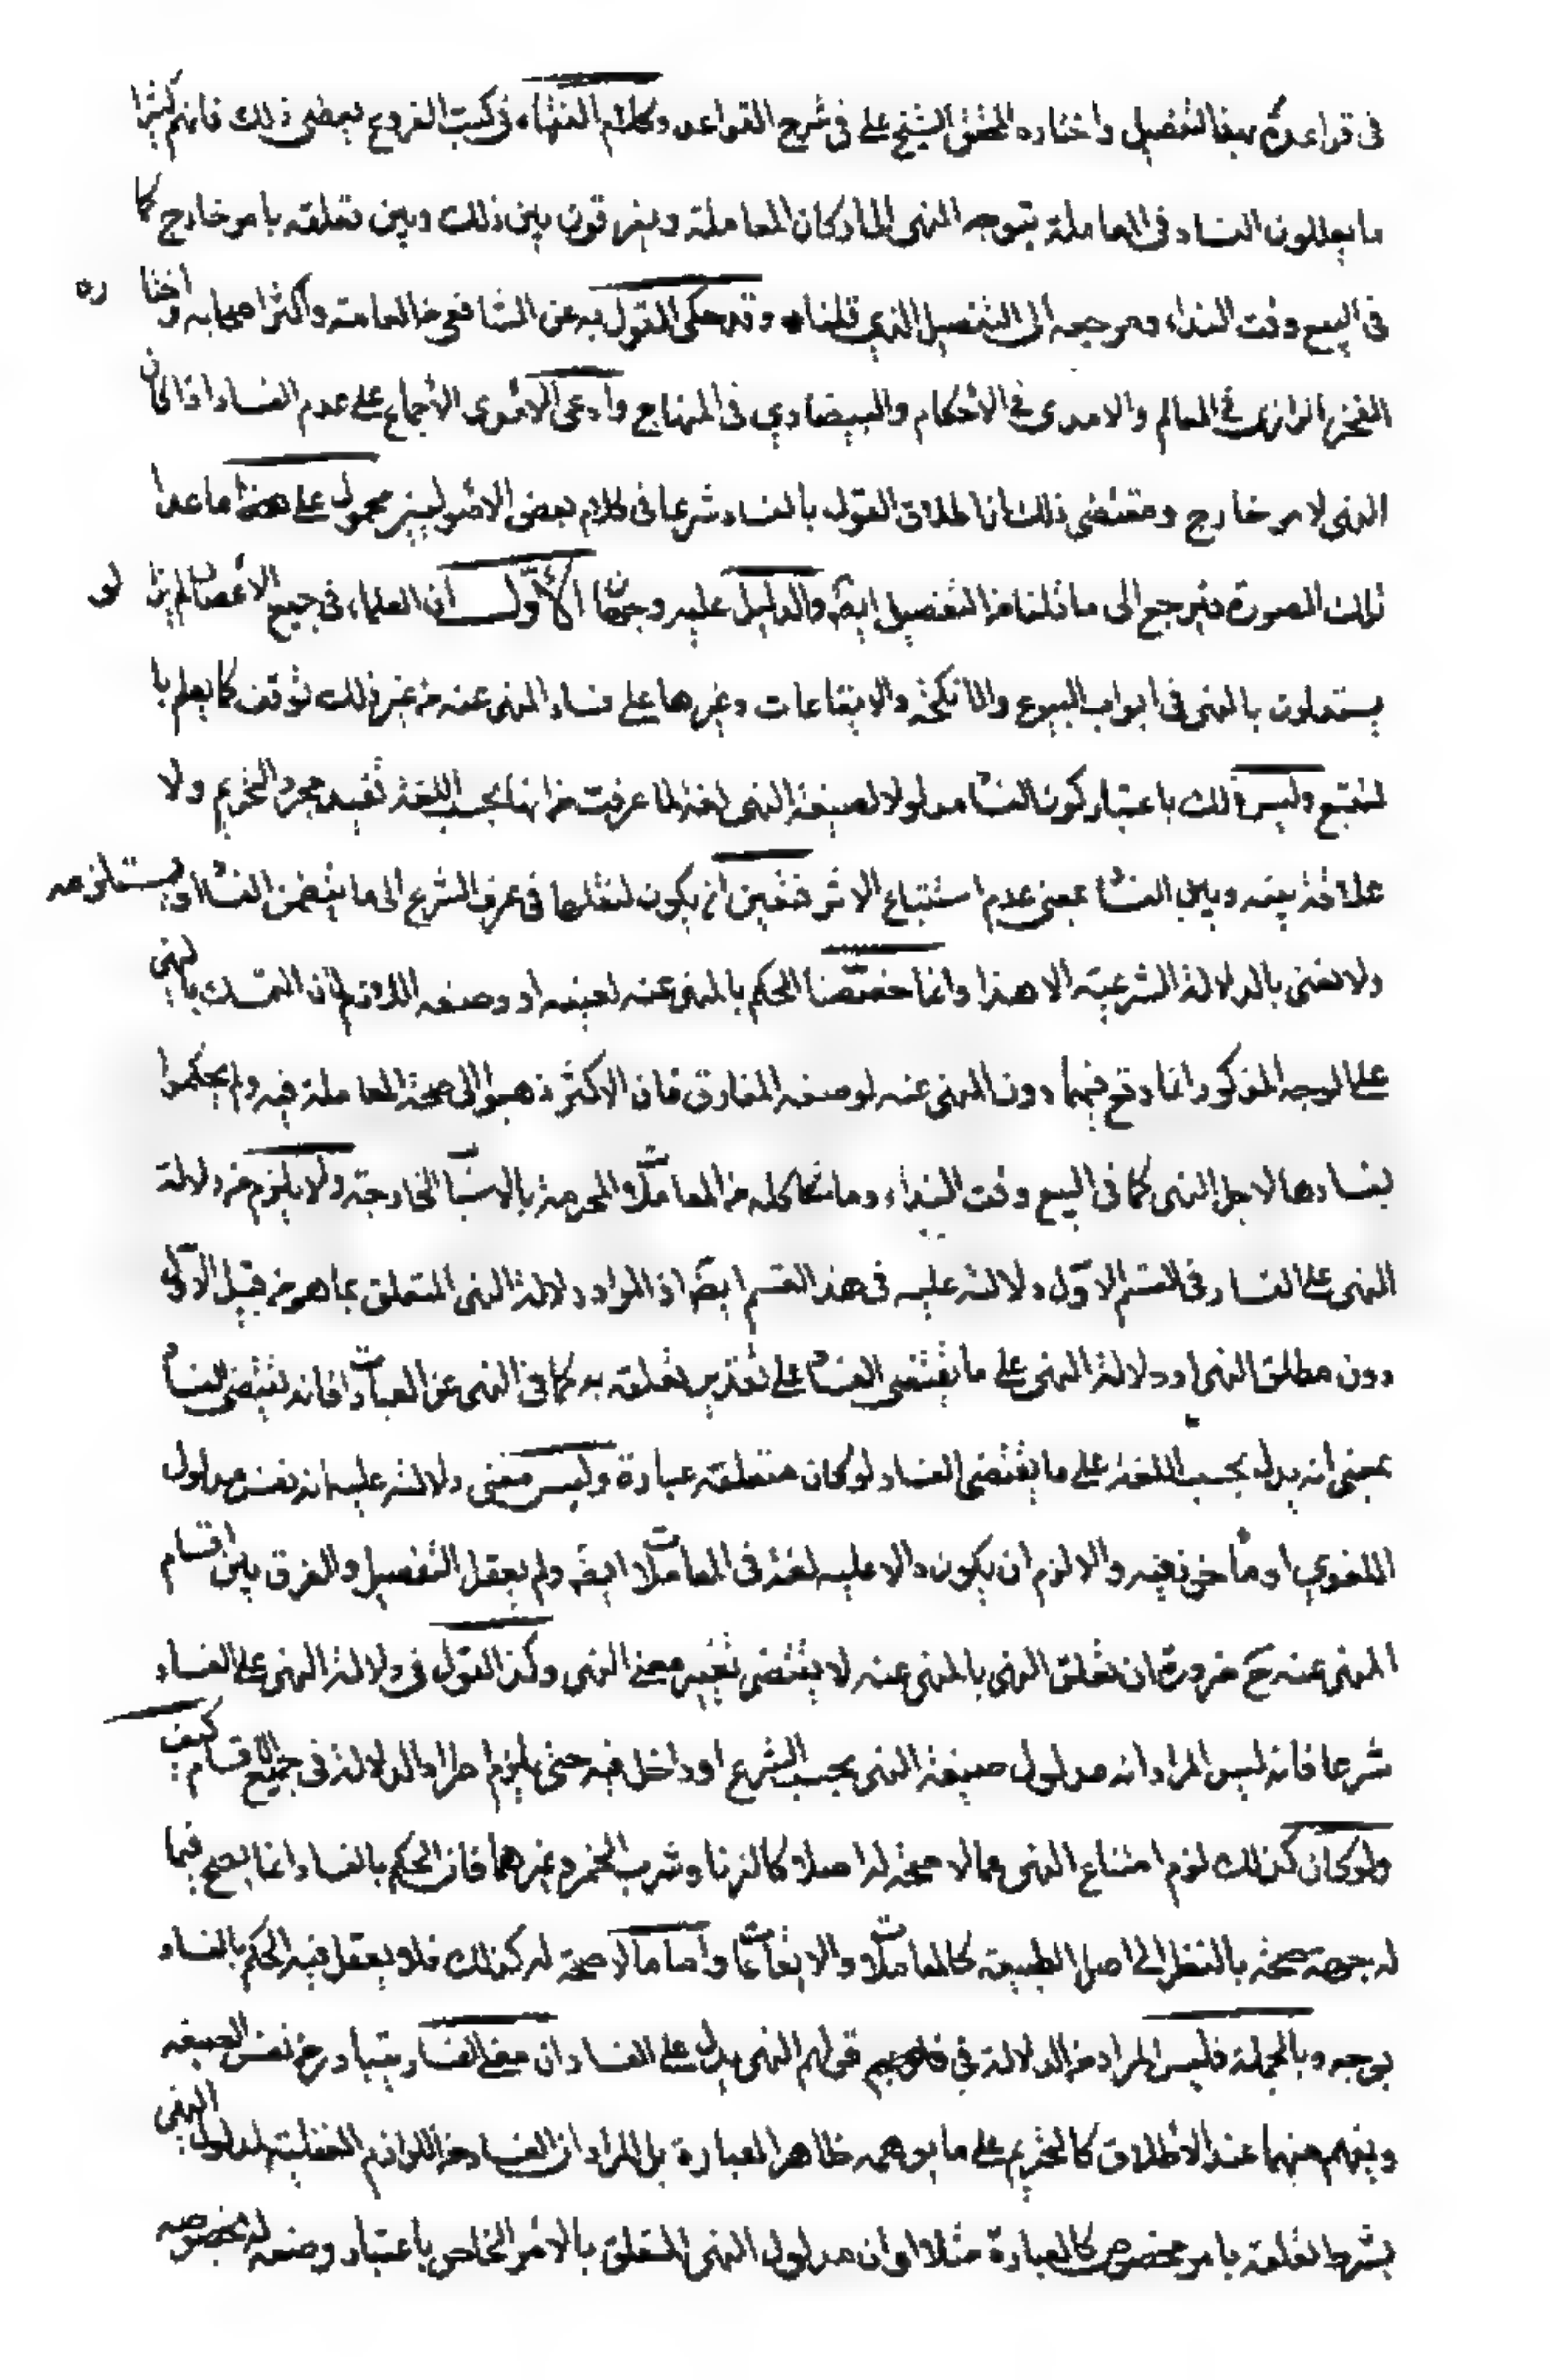 فى قواعده بهذا التفصيل واختاره المحقق الشيخ على فى شرح القواعد وكلام الفقهاء فى كتب الفروع يعضى ذلك فانهم كثيرا
ما يعللون الفساد فى المعاملة بتوجه النهى الى اركان المعاملة ويفرقون بين ذلك وبين تعلقه بامر خارج كما
فى البيع وقت النداء ومرجعه الى التفصيل الذي قلناه وقد حكى القول به عن الشافعى من العامة واكثر اصحابه واختاره
الفخر الرازى فى المعالم والامدى فى الاحكام والبيضاوي فى المنهاج وادعى الامدى الاجماع على عدم الفساد اذا كان
النهى لامر خارج ومقتضى ذلك ان اطلاق القول بالفساد شرعا فى كلام بعض الاصوليين محمول على هذا ما عدا
تلك الصورة فيرجع الى ما قلنا من التفصيل ايضا والدليل عليه وجهان الاول ان العلماء فى جميع الاعصار لم يزالو
يستدلون بالنهى فى ابواب البيوع والانكحة والايقاعات وغيرها على فساد المنهى عنه من غير ذلك توقف كما يعلم با
لتتبع وليس ذلك باعتبار كون الفساد مدلولا لصيغة النهى لغة لما عرفت من انها بحسب اللغة تفيد مجرد التحريم ولا
علاقة بينه وبين الفساد بمعنى عدم استتباع الاثر فتعين ان يكون لنقلها فى عرف الشرع الى ما يتضمن الفساد او يستلزمه
ولا نعنى بالدلالة الشرعية الا هذا وانما خصصنا الحكم بالمنهى عنه لعينه او وصفه اللازم لان التمسك بالنهى
على الوجه المذكور انما وقع فيهما دون المنهى عنه لوصفه المفارق فان الاكثر ذهبوا الى صحة المعاملة فيه ولم يحكموا
بفسادها لاجل النهى كما فى البيع وقت النداء وما شاكله من المعاملات المحرمة بالاسباب الخارجة ولا يلزم من دلالة
النهى على الفساد فى القسم الاول دلالته عليه فى هذا القسم ايضا اذ المراد دلالة النهى المتعلق بما هو من قبيل الاول
دون مطلق النهى او دلالة النهى على ما يقتضى الفساد على تقدير تعلقه به كما فى النهى عن العبادات فانه يقتضى الفساد
بمعنى انه يدل بحسب اللغة على ما يقتضى الفساد لو كان متعلقه عبادة وليس معنى دلالته عليه انه نفس مدلول
اللغوي او مأخوذ فيه والا لزم ان يكون دالا عليه لغة فى المعاملات ايضا ولم يعقل التفصيل والفرق بين اقسام
المنهى عنه ح ضرورة ان تعلق النهى بالمنهى عنه لا يقتضى تغيير معنى النهى وكذا القول فى دلالة النهى على الفساد
شرعا فانه ليس المراد انه مدلول صيغة النهى بحسب الشرع او داخل فيه حتى يلزم اطراد الدلالة فى جميع الاقسام كيف
ولو كان كذلك لزم امتناع النهى عما لا صحة له اصلا كالزنا وشرب الخمر وغيرهما فان الحكم بالفساد انما يصح فيما
له جهة صحة بالنظر الى اصل الطبيعة كالمعاملات والايقاعات واما ما لا صحة له كذلك فلا يعقل فيه الحكم بالفساد
بوجه وبالجملة فليس المراد من الدلالة فى قولهم النهى يدل على الفساد ان معنى الفساد يتبادر من نفس الصيغه
ويفهم منها عند الاطلاق كالتحريم على ما يوهمه ظاهر العبارة بل المراد ان الفساد من اللوازم العقلية لمدلول النهى
بشرط تعلقه بامر مخصوص كالعبادة مثلا او ان مدلول النهى المتعلق بالامر الخاص باعتبار وضعه له بخصوصه